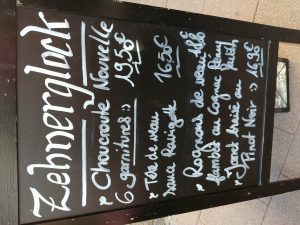 Zehnerglock
Choucroute Nouvelle
6 garnitures => 19,50€
Tête de veau 16,50€
sauce Ravigote
Rognons de veau
flambés au cognac
Jarret braisé au
Pinot Noir => 16,90€